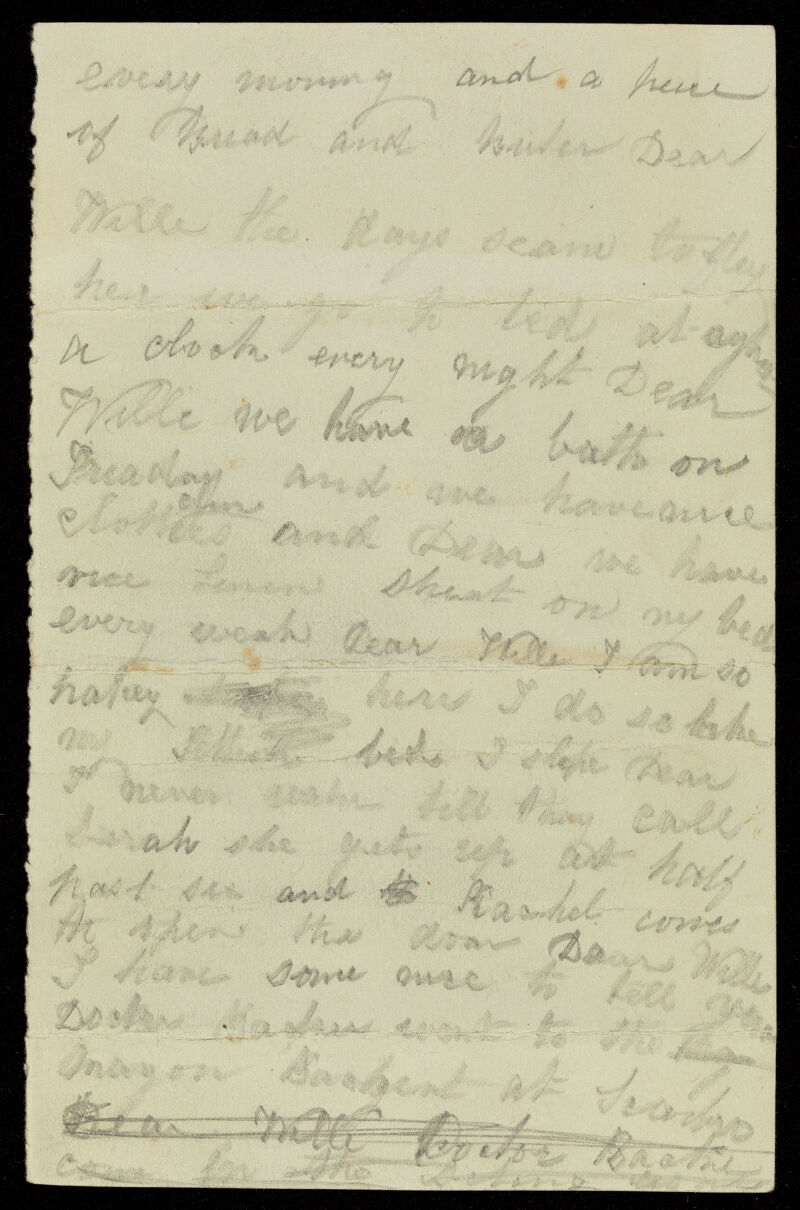 every morning and a peice
of Bread and buter Dear
Wille the Days seam to fley
her we go to bed at
a clock every night Dear
Wille we have a bath on
and we have nice
clean
clothes and Dear we have
nice Linen sheat on my bed
every weak Dear Wille I am so
hapey here I do so like
my bed I slep Dear
I never wake till thay call
Sarah she gets up at half
past six and Rachel comes
to open the door Dear Wille
I have some nice to tell you
Docter went to the
at
Dear Wille Doctor
come in the